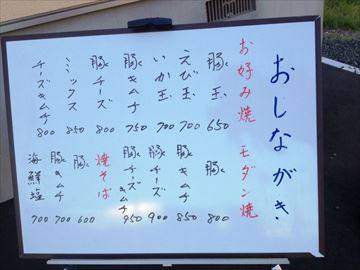 おしながき
お好み焼
豚玉 650
えび玉 700
いか玉 700
豚キムチ 750
豚チーズ 800
ミックス 850
チーズキムチ 800
モダン焼
豚 800
豚キムチ 850
豚チーズ 900
豚チーズキムチ 950
焼そば
豚 600
豚キムチ 700
海鮮塩 700